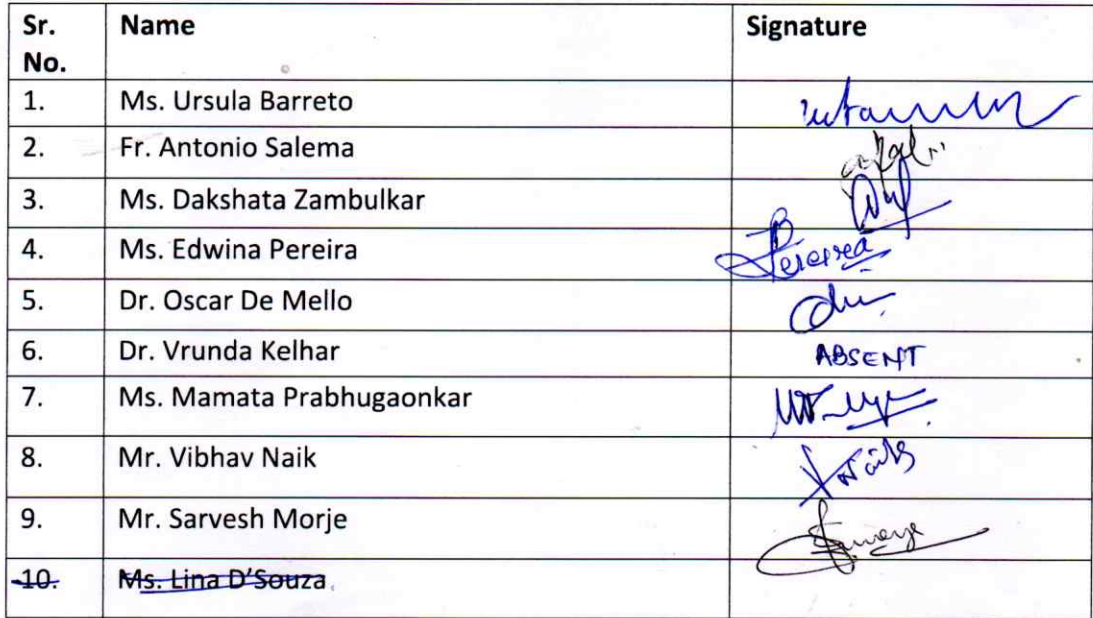 Sr. No. Name Signature
1. Ms. Ursula Barreto
2. Fr. Antonio Salema
3. Ms. Dakshata Zambulkar
4. Ms. Edwina Pereira Pereira
5. Dr. Oscar De Mello
6. Dr. Vrunda Kelhar ABSENT
7. Ms. Mamata Prabhugaonkar
8. Mr. Vibhav Naik Naik
9. Mr. Sarvesh Morje
10. Ms. Lina D'Souza